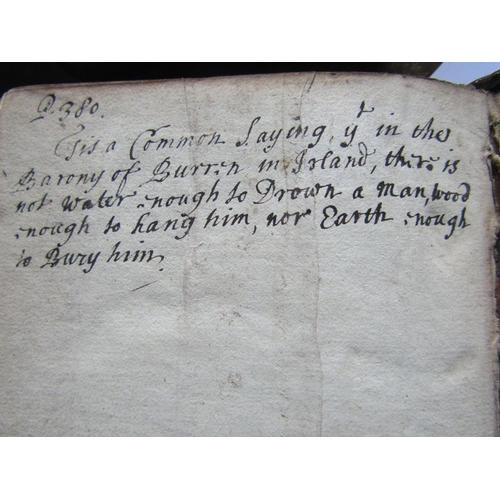 P. 380.
Tis a Common Saying, yt in the
Barony of Burren in Irland, there is
not water enough to Drown a man, wood
enough to hang him, nor Earth enough
to Bury him.